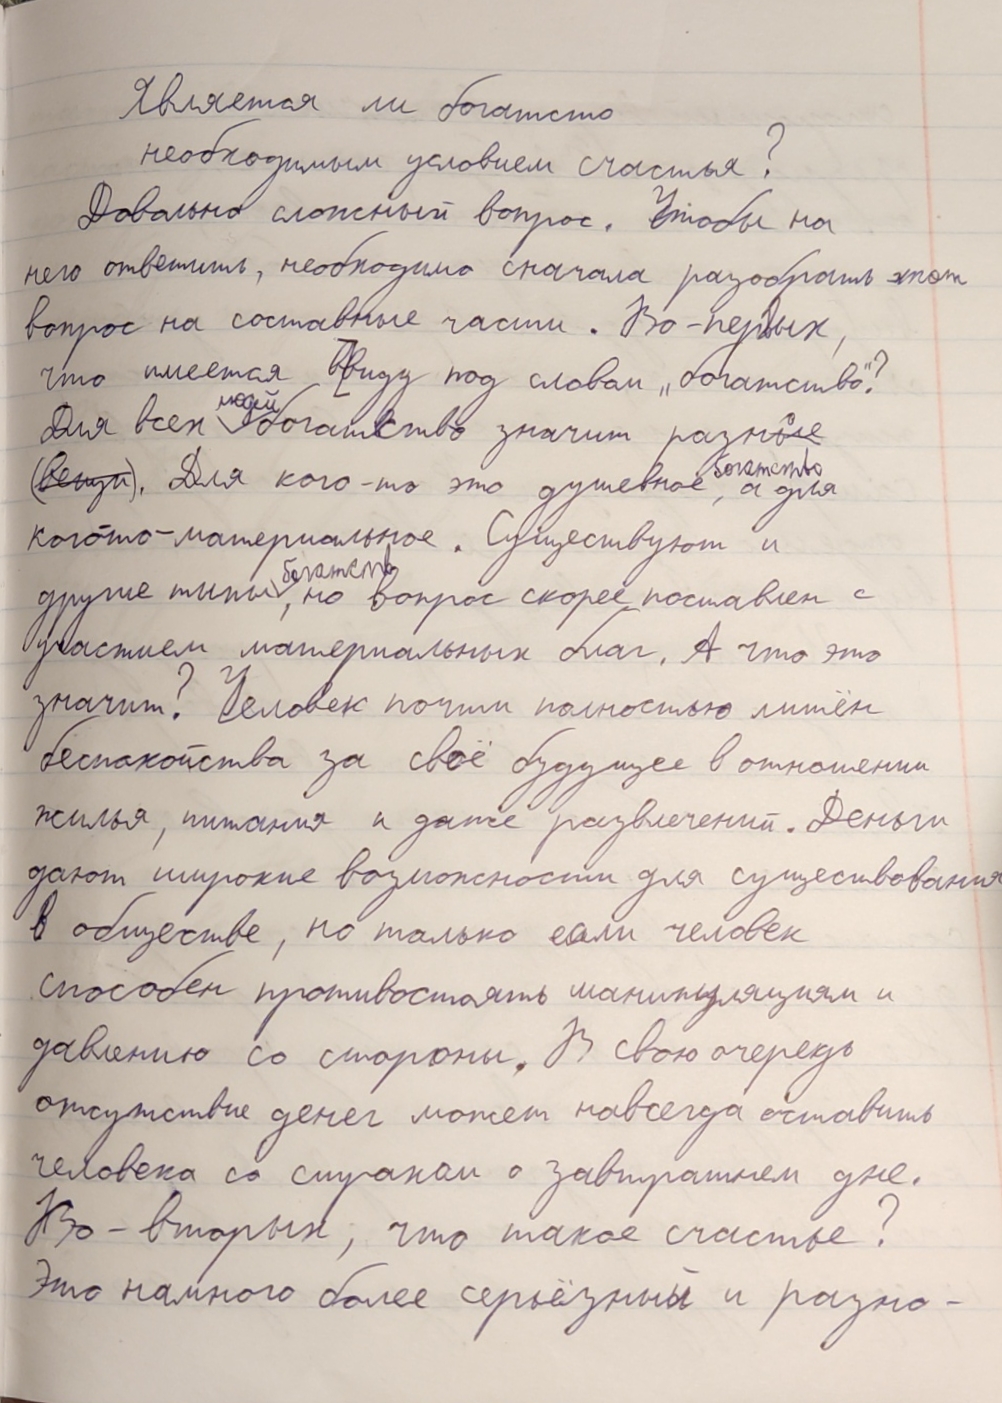 Является ли богатсто
необходимым условием счастья?
Довольно сложный вопрос. Чтобы на
него ответить, необходимо сначала разобрать этот
вопрос на составные части. Во-первых,
что имеется ввиду под словом „богатство"?
Для всех людей богатство значит разное
(вещи). Для кого-то это душевное богатство, а для
кого-то-материальное. Существуют и
другие типы богатств, но вопрос скорее поставлен с
участием материальных благ. А что это
значит? Человек почти полностью лишён
беспокойства за своё будущее в отношении
жилья, питания и даже развлечений. Деньги
дают широкие возможности для существования
в обществе, но только если человек
способен противостоять манипуляциям и
давлению со стороны. В свою очередь
отсутствие денег может навсегда оставить
человека со страхом о завтрашнем дне.
Во-вторых, что такое счастье?
Это намного более серьёзный и разно-